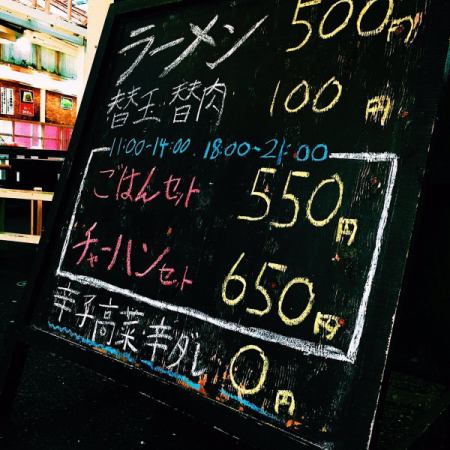 ラーメン 500円
替玉 替肉 100円
11:00~14:00 18:00~21:00
ごはんセット 550円
チャーハンセット 650円
辛子高菜 辛ダレ 0円